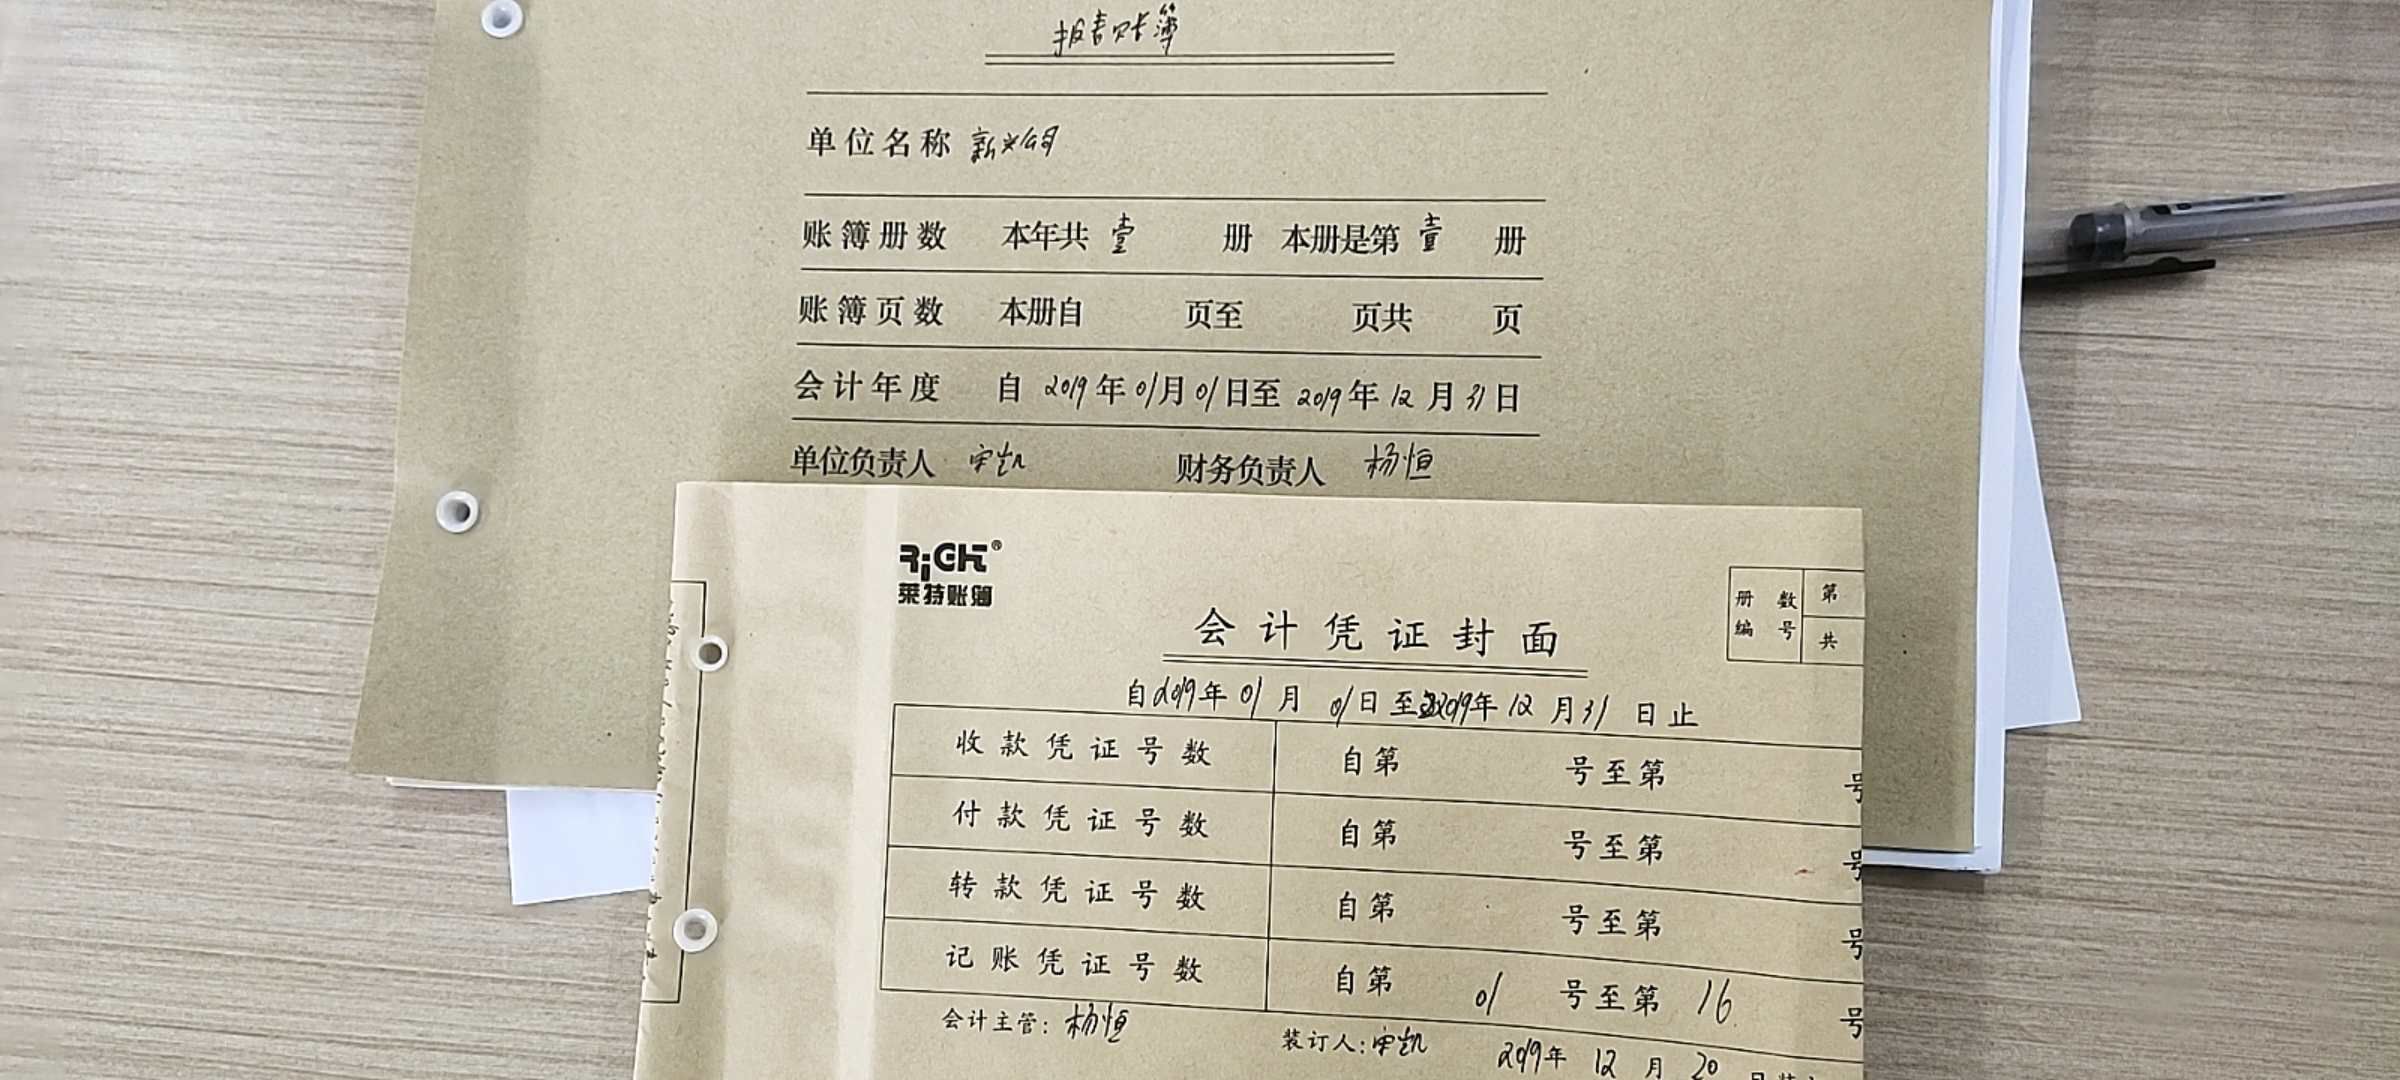 报表账簿
单位名称 新兴公司
账簿册数 本年共 壹 册 本册是第 壹 册
账簿页数 本册自 页至 页共 页
会计年度 自 2019 年 01 月 01 日至 2019 年 12 月 31 日
单位负责人 宋凯 财务负责人 杨恒
RiCHT®
莱特账簿
册数编号 第 共
会计凭证封面
自 2019 年 01 月 01 日 至 2019 年 12 月 31 日止
收款凭证号数 自第 号至第 号
付款凭证号数 自第 号至第 号
转款凭证号数 自第 号至第 号
记账凭证号数 自第 01 号至第 16 号
会计主管: 杨恒 装订人: 宋凯 2019 年 12 月 20